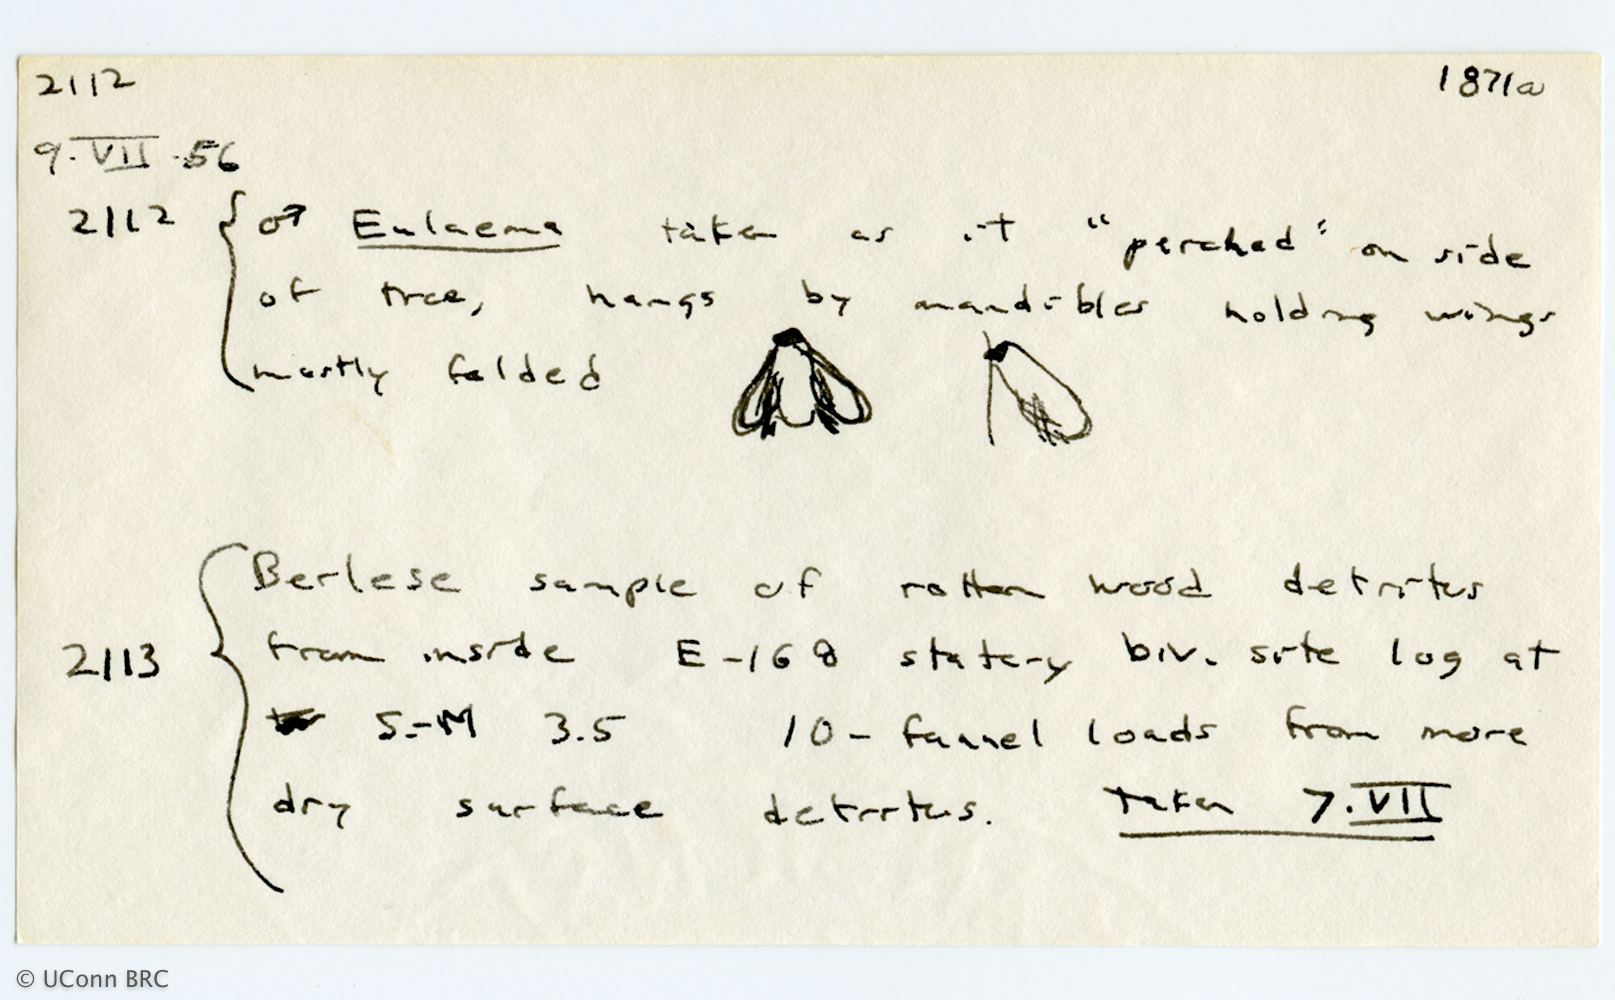 2112
1871a
9.VII.56
2112 { ♂ Eulaema taken as it "perched" on side
of tree, hangs by mandibles holding wings
mostly folded
Berlese sample of rotten wood detritus
2113 { from inside E-168 statary biv. site log at
S.-M 3.5 10-funnel loads from more
dry surface detritus. Taken 7.VII
© UConn BRC